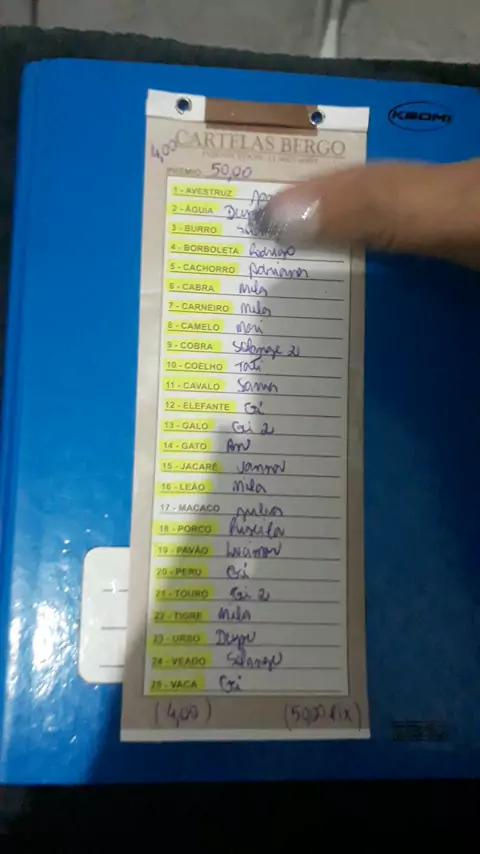 KEOMI
CARTELAS BERGO
4,00
PRÊMIO 50,00
1 - AVESTRUZ
2 - ÁGUIA
3 - BURRO
4 - BORBOLETA Rodrigo
5 - CACHORRO Adriana
6 - CABRA Mila
7 - CARNEIRO Mila
8 - CAMELO Mari
9 - COBRA Solange 2
10 - COELHO Tati
11 - CAVALO
12 - ELEFANTE Cri
13 - GALO Cri 2
14 - GATO
15 - JACARÉ
16 - LEÃO Mila
17 - MACACO Julia
18 - PORCO Priscila
19 - PAVÃO Lucimar
20 - PERU Cri
21 - TOURO Cri 2
22 - TIGRE Mila
23 - URSO
24 - VEADO Solange
25 - VACA Cri
(4,00) (50,00 Pix)